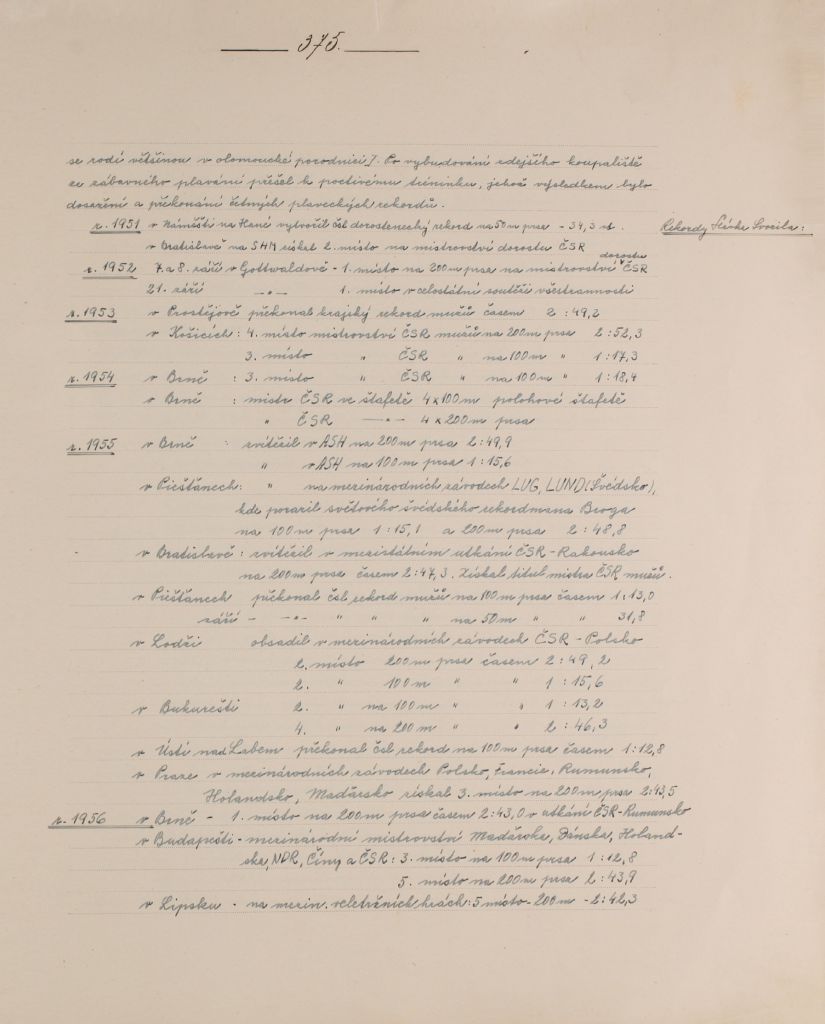 375.
se rodí většinou v olomoucké porodnici/. Po vybudování zdejšího koupaliště
ze zábavného plavání přešel k poctivému tréninku, jehož výsledkem bylo
dosažení a překonání četných plaveckých rekordů.
Rekordy Slávka Svozila:
r. 1951 v Náměšti na Hané vytvořil čsl dorostenecký rekord na 50 m prsa - 34,3
v Bratislavě na SHM získal 2. místo na mistrovství dorostu ČSR
r. 1952 7. a 8. září v Gottwaldově - 1. místo na 200 m prsa na mistrovství dorostu ČSR
21. září —"— 1. místo v celostátní soutěži všestrannosti
r. 1953 v Prostějově překonal krajský rekord mužů časem 2:49,2
v Košicích: 4. místo mistrovství ČSR mužů na 200 m prsa 2:52,3
3. místo " ČSR " na 100 m " 1:17,3
r. 1954 v Brně : 3. místo " ČSR " na 100 m " 1:18,4
v Brně : mistr ČSR ve štafetě 4x100 m polohové štafetě
" ČSR —"— 4x200 m prsa
r. 1955 v Brně : zvítězil v ASH na 200 m prsa 2:49,9
" v ASH na 100 m prsa 1:15,6
v Piešťanech: " na mezinárodních závodech LUG, LUND (Švédsko),
kde porazil světového švédského rekordmana Broga
na 100 m prsa 1:15,1 a 200 m prsa 2:48,8
v Bratislavě: zvítězil v mezistátním utkání ČSR-Rakousko
na 200 m prsa časem 2:47,3. Získal titul mistra ČSR mužů.
v Piešťanech překonal čsl. rekord mužů na 100 m prsa časem 1:13,0
září - -"- " " " na 50 m " " 31,8
v Lodži obsadil v mezinárodních závodech ČSR - Polsko
2. místo 200 m prsa časem 2:49,2
2. " 100 m " " 1:15,6
v Bukurešti 2. " na 100 m " " 1:13,2
4. " na 200 m " " 2:46,3
v Ústí nad Labem překonal čsl rekord na 100 m prsa časem 1:12,8
v Praze v mezinárodních závodech Polsko, Francie, Rumunsko,
Holandsko, Maďarsko získal 3. místo na 200 m prsa 2:43,5
r. 1956 v Brně - 1. místo na 200 m prsa časem 2:43,0 v utkání ČSR-Rumunsko
v Budapešti - mezinárodní mistrovství Maďarska, Dánska, Holand-
ska, NDR, Číny a ČSR: 3. místo na 100 m prsa 1:12,8
5. místo na 200 m prsa 2:43,9
v Lipsku - na mezin. veletržních hrách: 5 místo - 200 m - 2:42,3